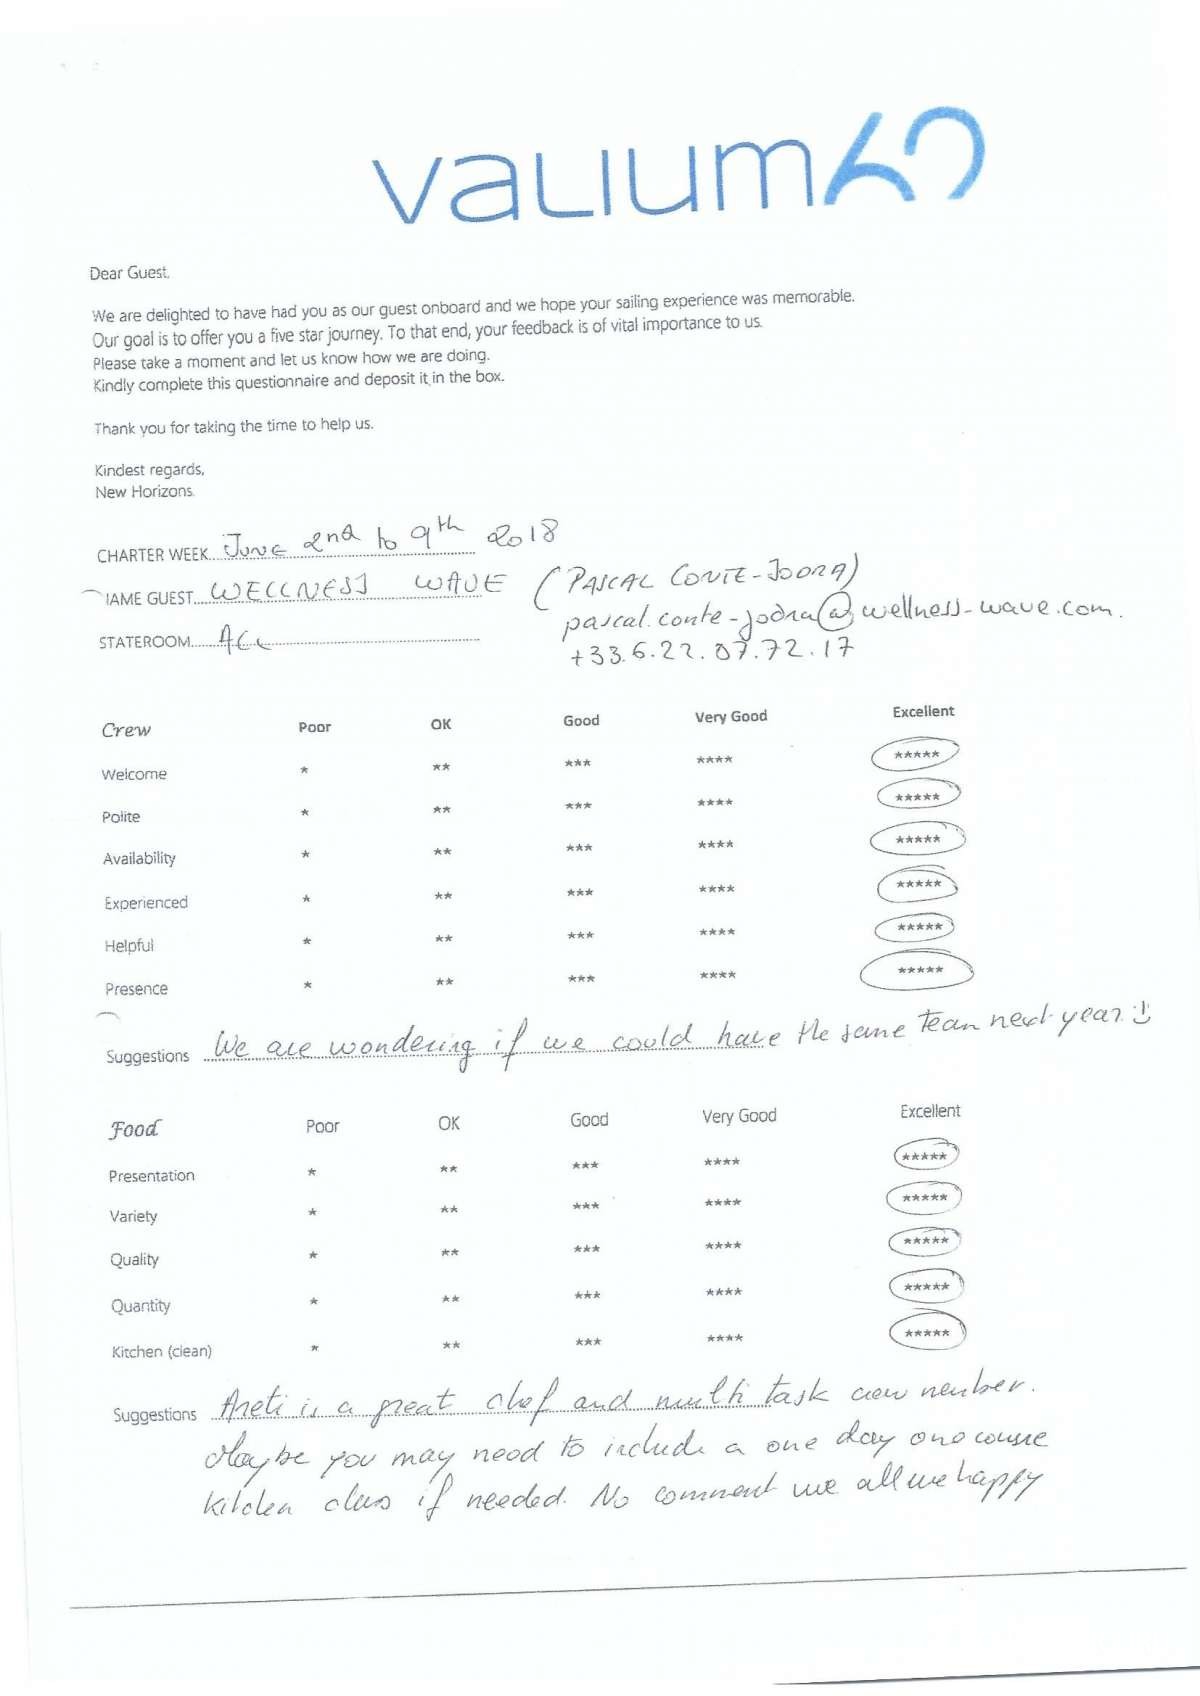 valium62
Dear Guest,
We are delighted to have had you as our guest onboard and we hope your sailing experience was memorable.
Our goal is to offer you a five star journey. To that end, your feedback is of vital importance to us.
Please take a moment and let us know how we are doing.
Kindly complete this questionnaire and deposit it in the box.
Thank you for taking the time to help us.
Kindest regards,
New Horizons.
CHARTER WEEK June 2nd to 9th 2018
IAME GUEST WELLNESS WAVE (PASCAL CONTE-JODRA)
pascal.conte-jodra@wellness-wave.com.
STATEROOM ALL
+33.6.22.07.72.17
Crew Poor OK Good Very Good Excellent
Welcome * ** *** **** *****
Polite * ** *** **** *****
Availability * ** *** **** *****
Experienced * ** *** **** *****
Helpful * ** *** **** *****
Presence * ** *** **** *****
Suggestions We are wondering if we could have the same team next year :)
Food Poor OK Good Very Good Excellent
Presentation * ** *** **** *****
Variety * ** *** **** *****
Quality * ** *** **** *****
Quantity * ** *** **** *****
Kitchen (clean) * ** *** **** *****
Suggestions Areti is a great chef and multi task crew member.
Maybe you may need to include a one day one course
kitchen class if needed. No comment we all we happy